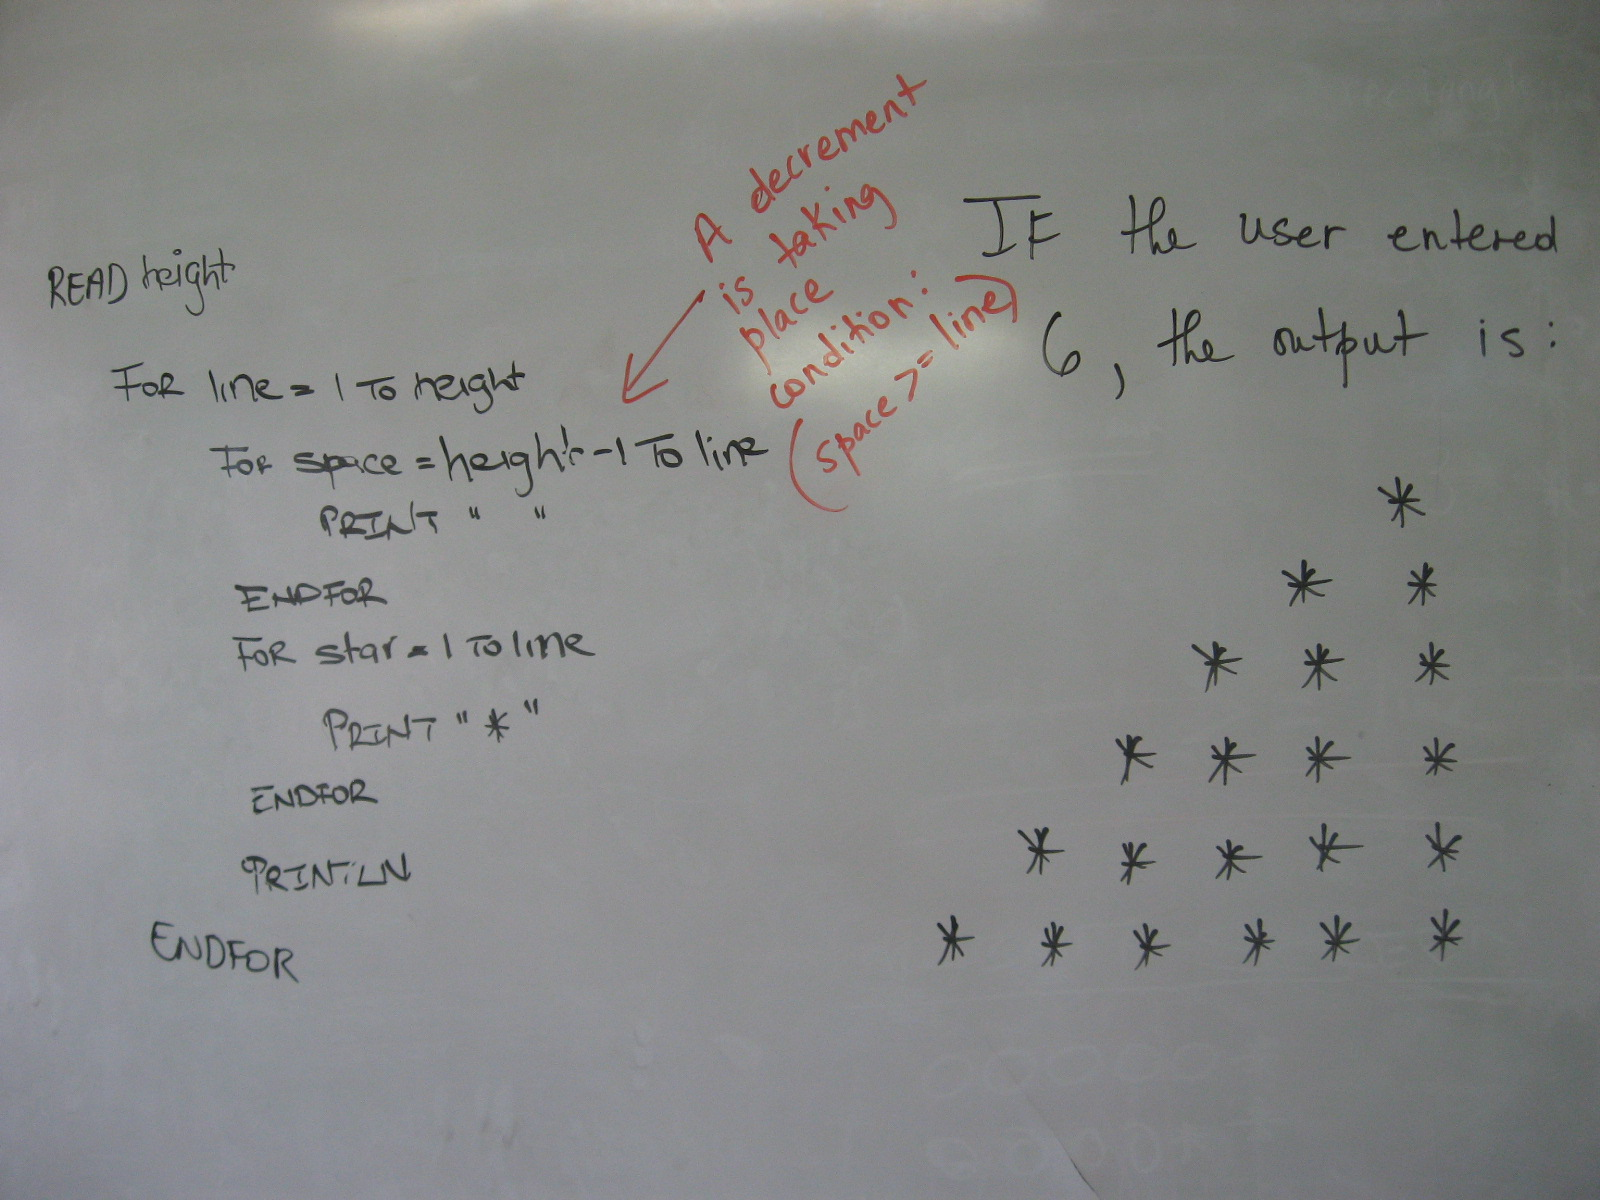 READ height
FOR line = 1 TO height
FOR space = height - 1 TO line
PRINT " "
ENDFOR
FOR star = 1 TO line
PRINT " * "
ENDFOR
PRINTLN
ENDFOR
A decrement
is taking
place
condition:
(space >= line)
IF the user entered
6, the output is:
*
* *
* * *
* * * *
* * * * *
* * * * * *